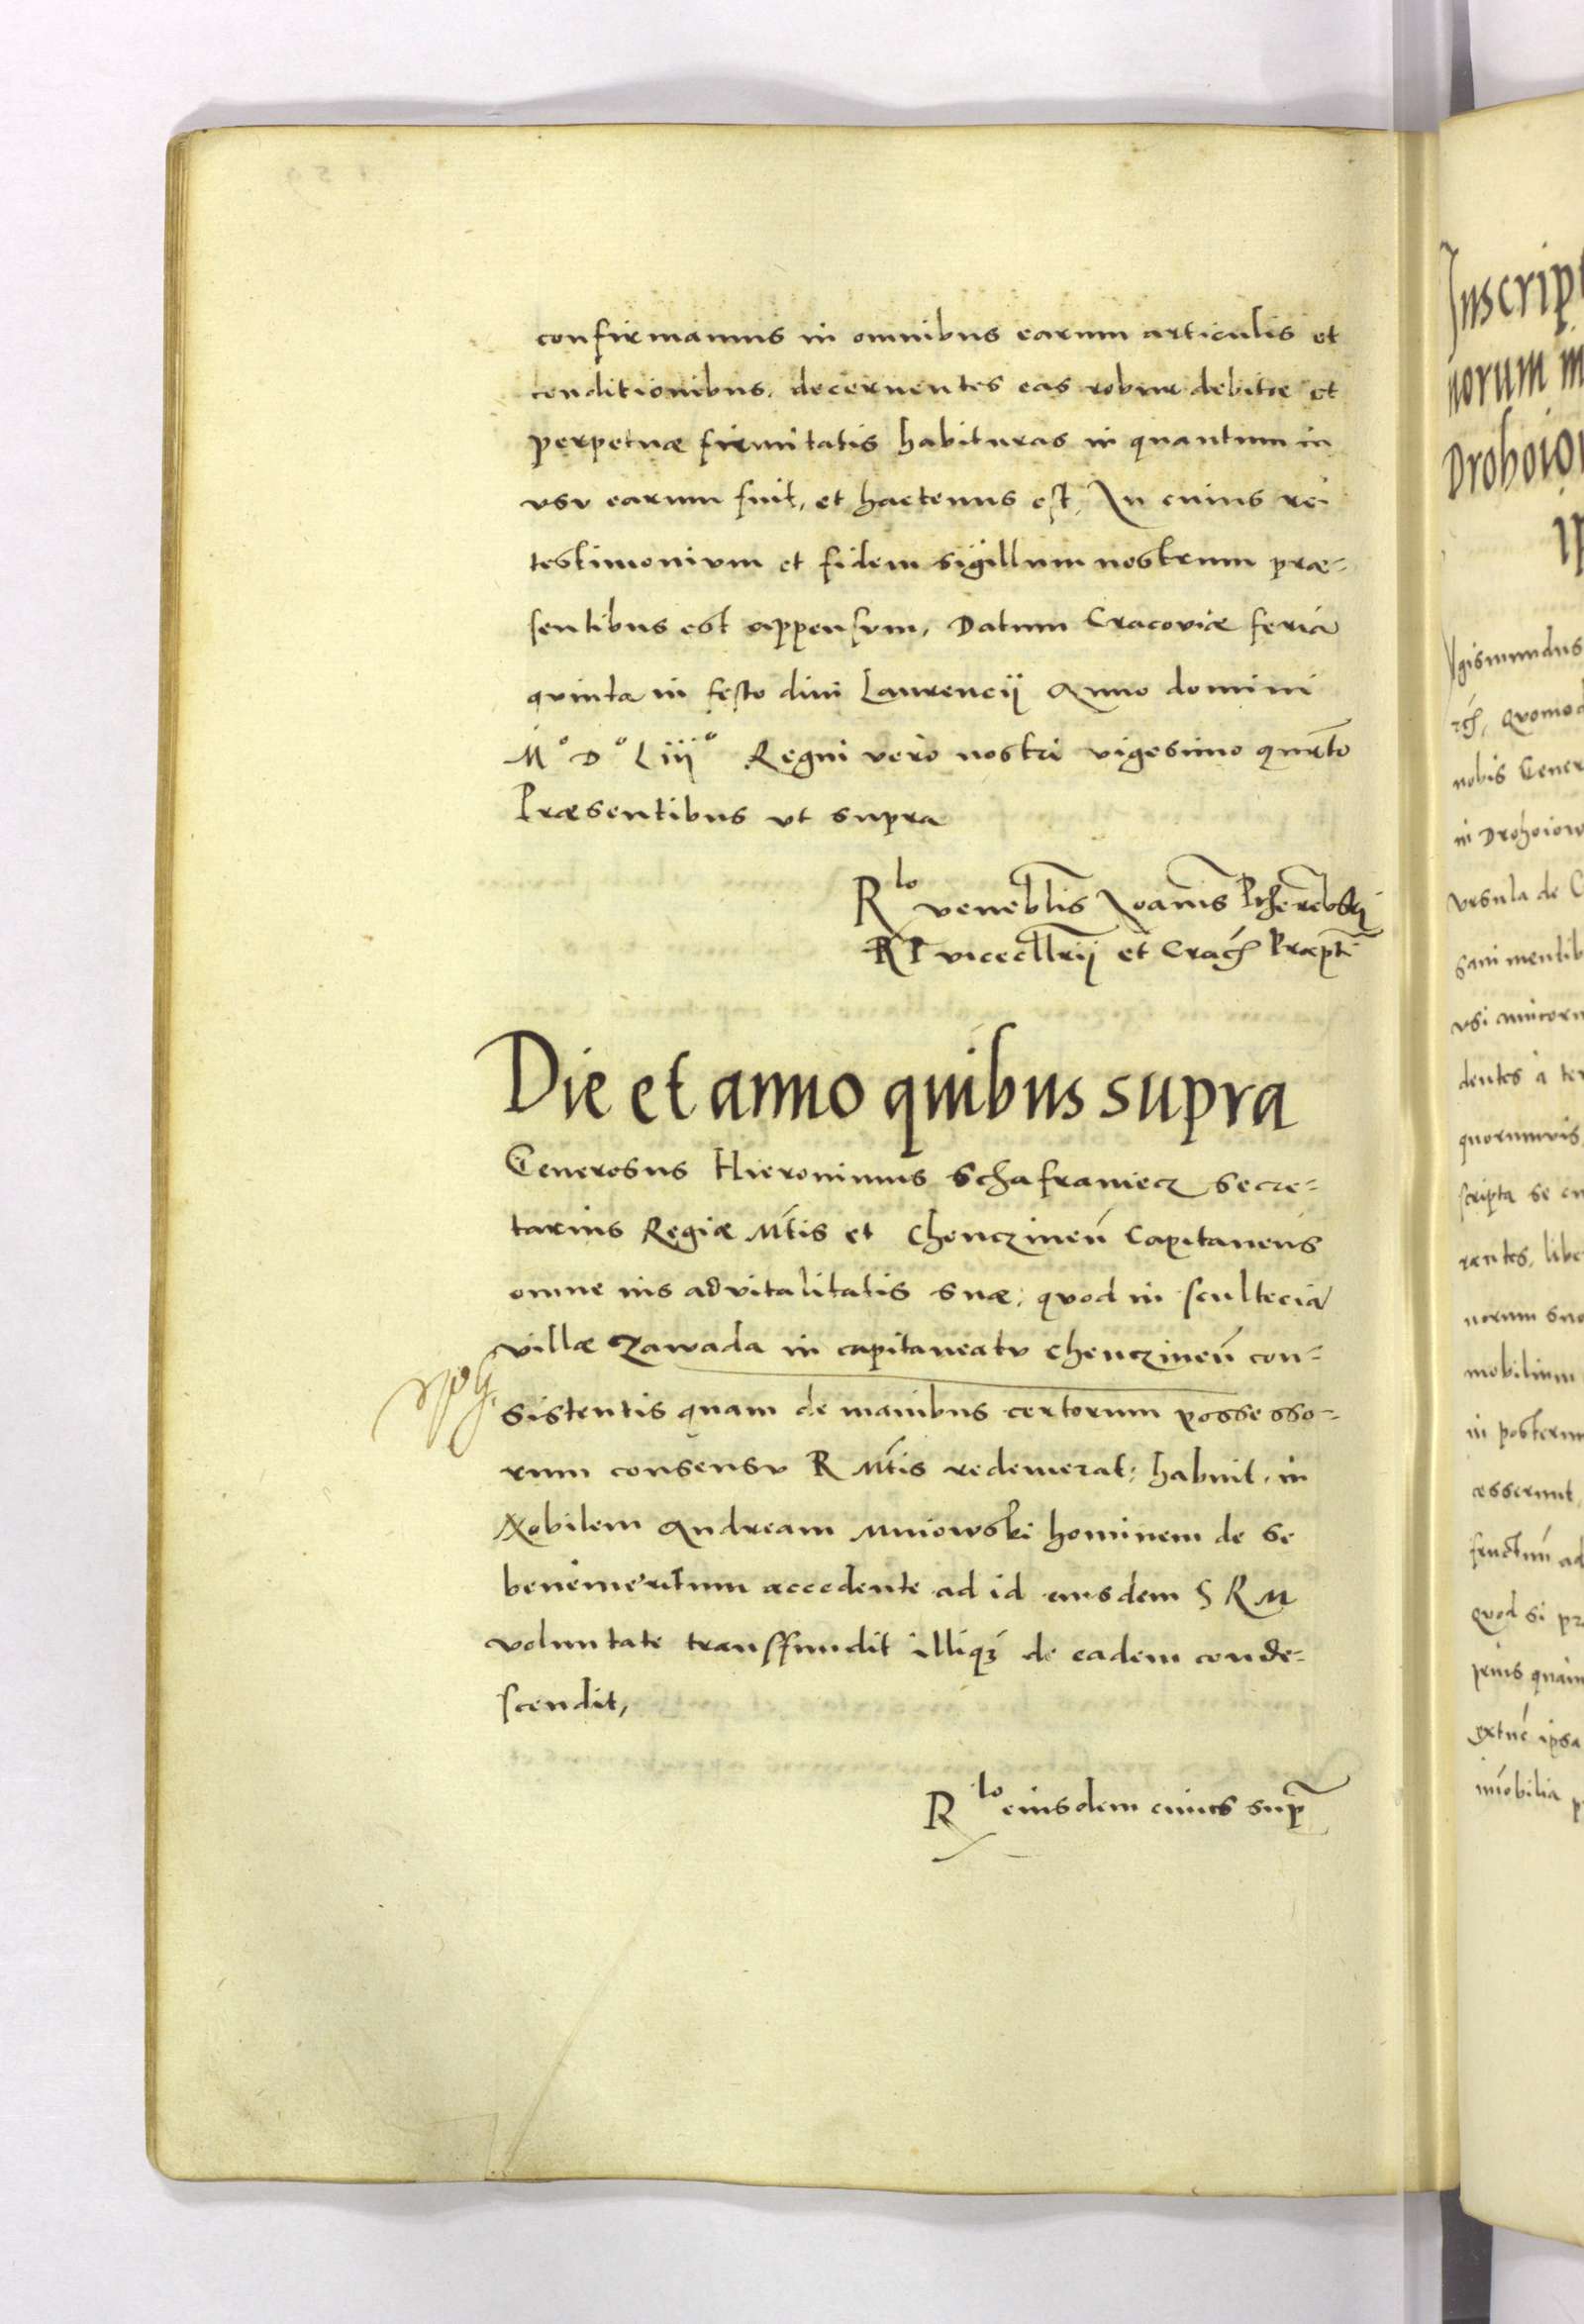 confirmamus in omnibus earum articulis et
conditionibus, decernentes eas robur debitæ et
perpetuæ firmitatis habituras in quantum in
vsv earum fuit, et hactenus est, In cuius rei
testimonivm et fidem sigillum nostrum præ=
sentibus est appensvm, Datum Cracoviæ feria
qvinta in festo divi Laurencij Anno domini
M° D° Liij° Regni vero nostri vigesimo qurto
Præsentibus vt supra
Rlo veneblis Joanis
RP vicecllrij et Crac Præpti
Die et anno quibus supra
Generosus Hieronimus Schafraniecz Secre=
tarius Regiæ Mtis et Chenczinen Capitaneus
omne ius advitalitatis suæ, qvod in scultecia
villæ Zawada in capitaneatv chenczinen con=
sistentis quam de manibus certorum possesso=
rum consensv R Mtis redemerat, habuit, in
Nobilem Andream Mniowski hominem de se
benemeritum accedente ad id eiusdem S R M
voluntate transffundit illiqꝫ de eadem conde=
scendit,
Rlo eiusdem cuius sup
Inscript
norum m
Drohoio
gismundus
qvomod
nobis Gener
in Drohoiow
vrsula de C
sani mentib
vsi amicoru
dentes a ter
quorumvis
scripta se
rantes, libe
norum suo
mobilium
in posterum
cesserunt,
fructuu ad
qvod si pr
prius quam
extuc ipsa
imobilia p